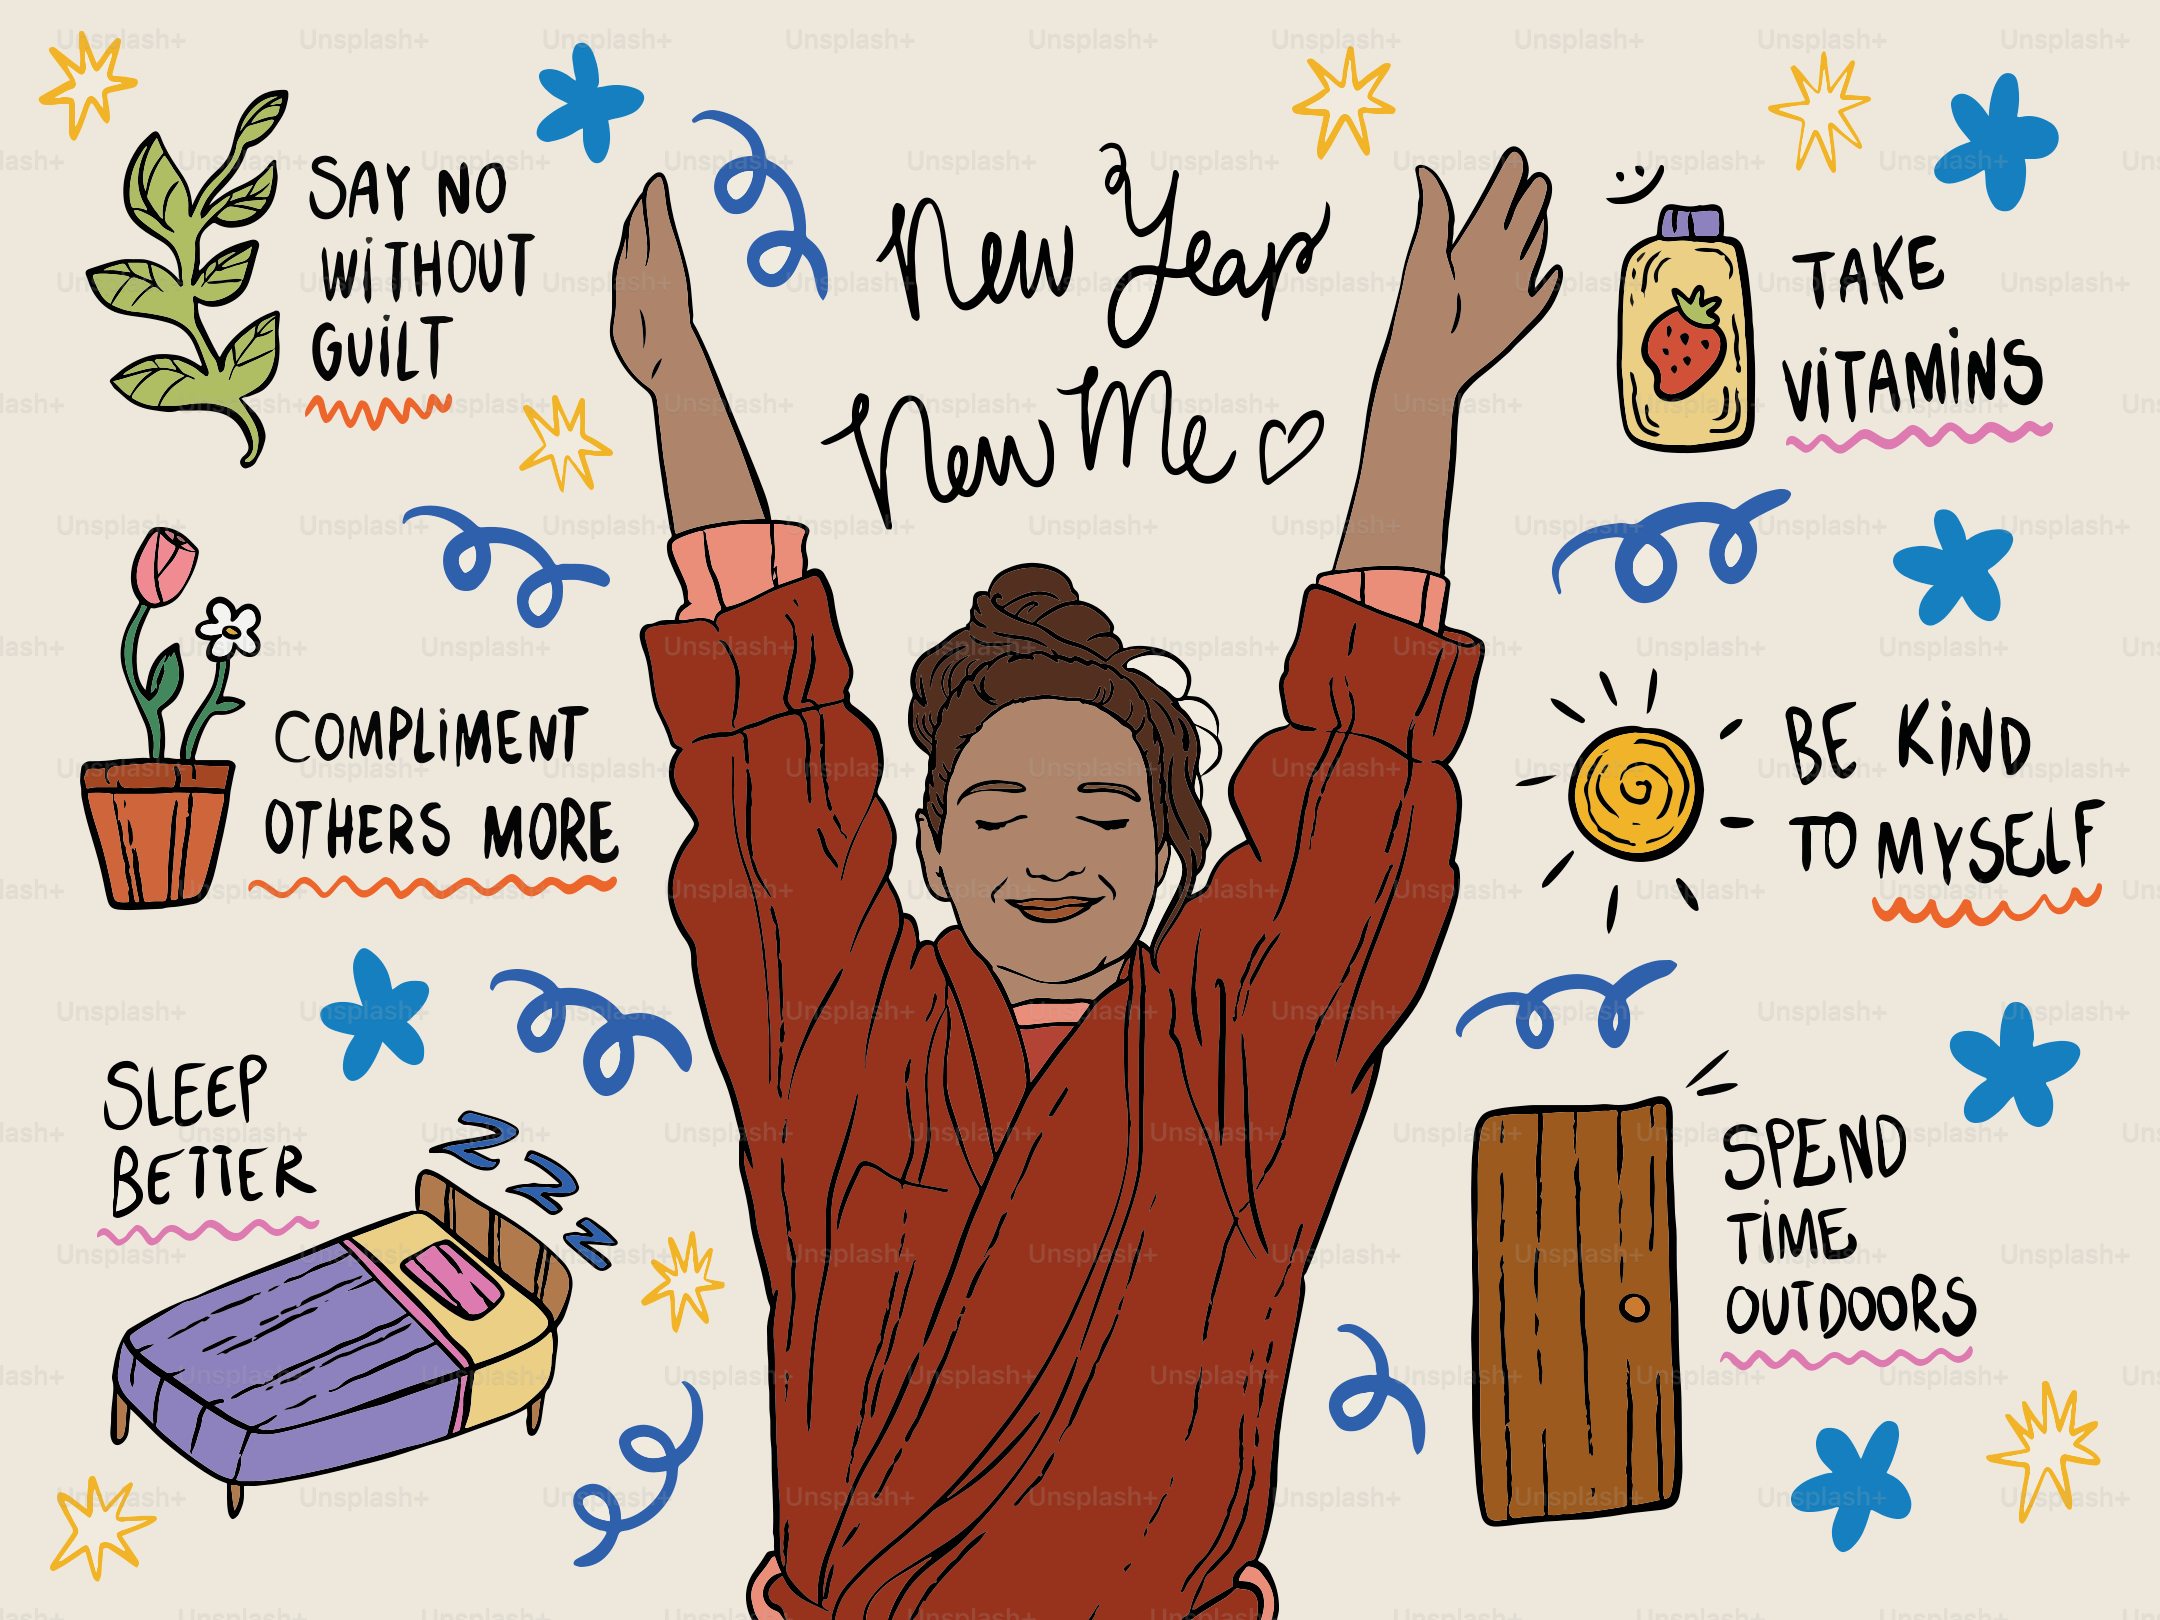 New Year
New Me
SAY NO
WiTHOUT
GUiLT
COMPLiMENT
OTHERS MORE
SLEEP
BETTER
ZZZ
TAKE
ViTAMiNS
BE KiND
TO MYSELF
SPEND
TiME
OUTDOORS
Unsplash+